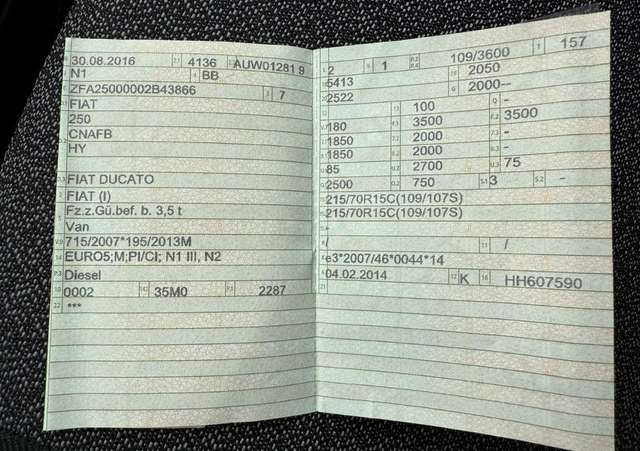 30.08.2016 4136 AUW01281 9
N1 BB
ZFA25000002B43866 7
FIAT
250
CNAFB
HY
FIAT DUCATO
FIAT (I)
Fz.z.Gü.bef. b. 3,5 t
Van
715/2007*195/2013M
EURO5;M;PI/CI; N1 III, N2
Diesel
0002 35M0 2287
***
2 1 109/3600 157
5413 2050
2522 2000--
100 -
180 3500 3500
1850 2000 -
1850 2000 -
85 2700 75
2500 750 3 -
215/70R15C(109/107S)
215/70R15C(109/107S)
-
/ /
e3*2007/46*0044*14
04.02.2014 K HH607590